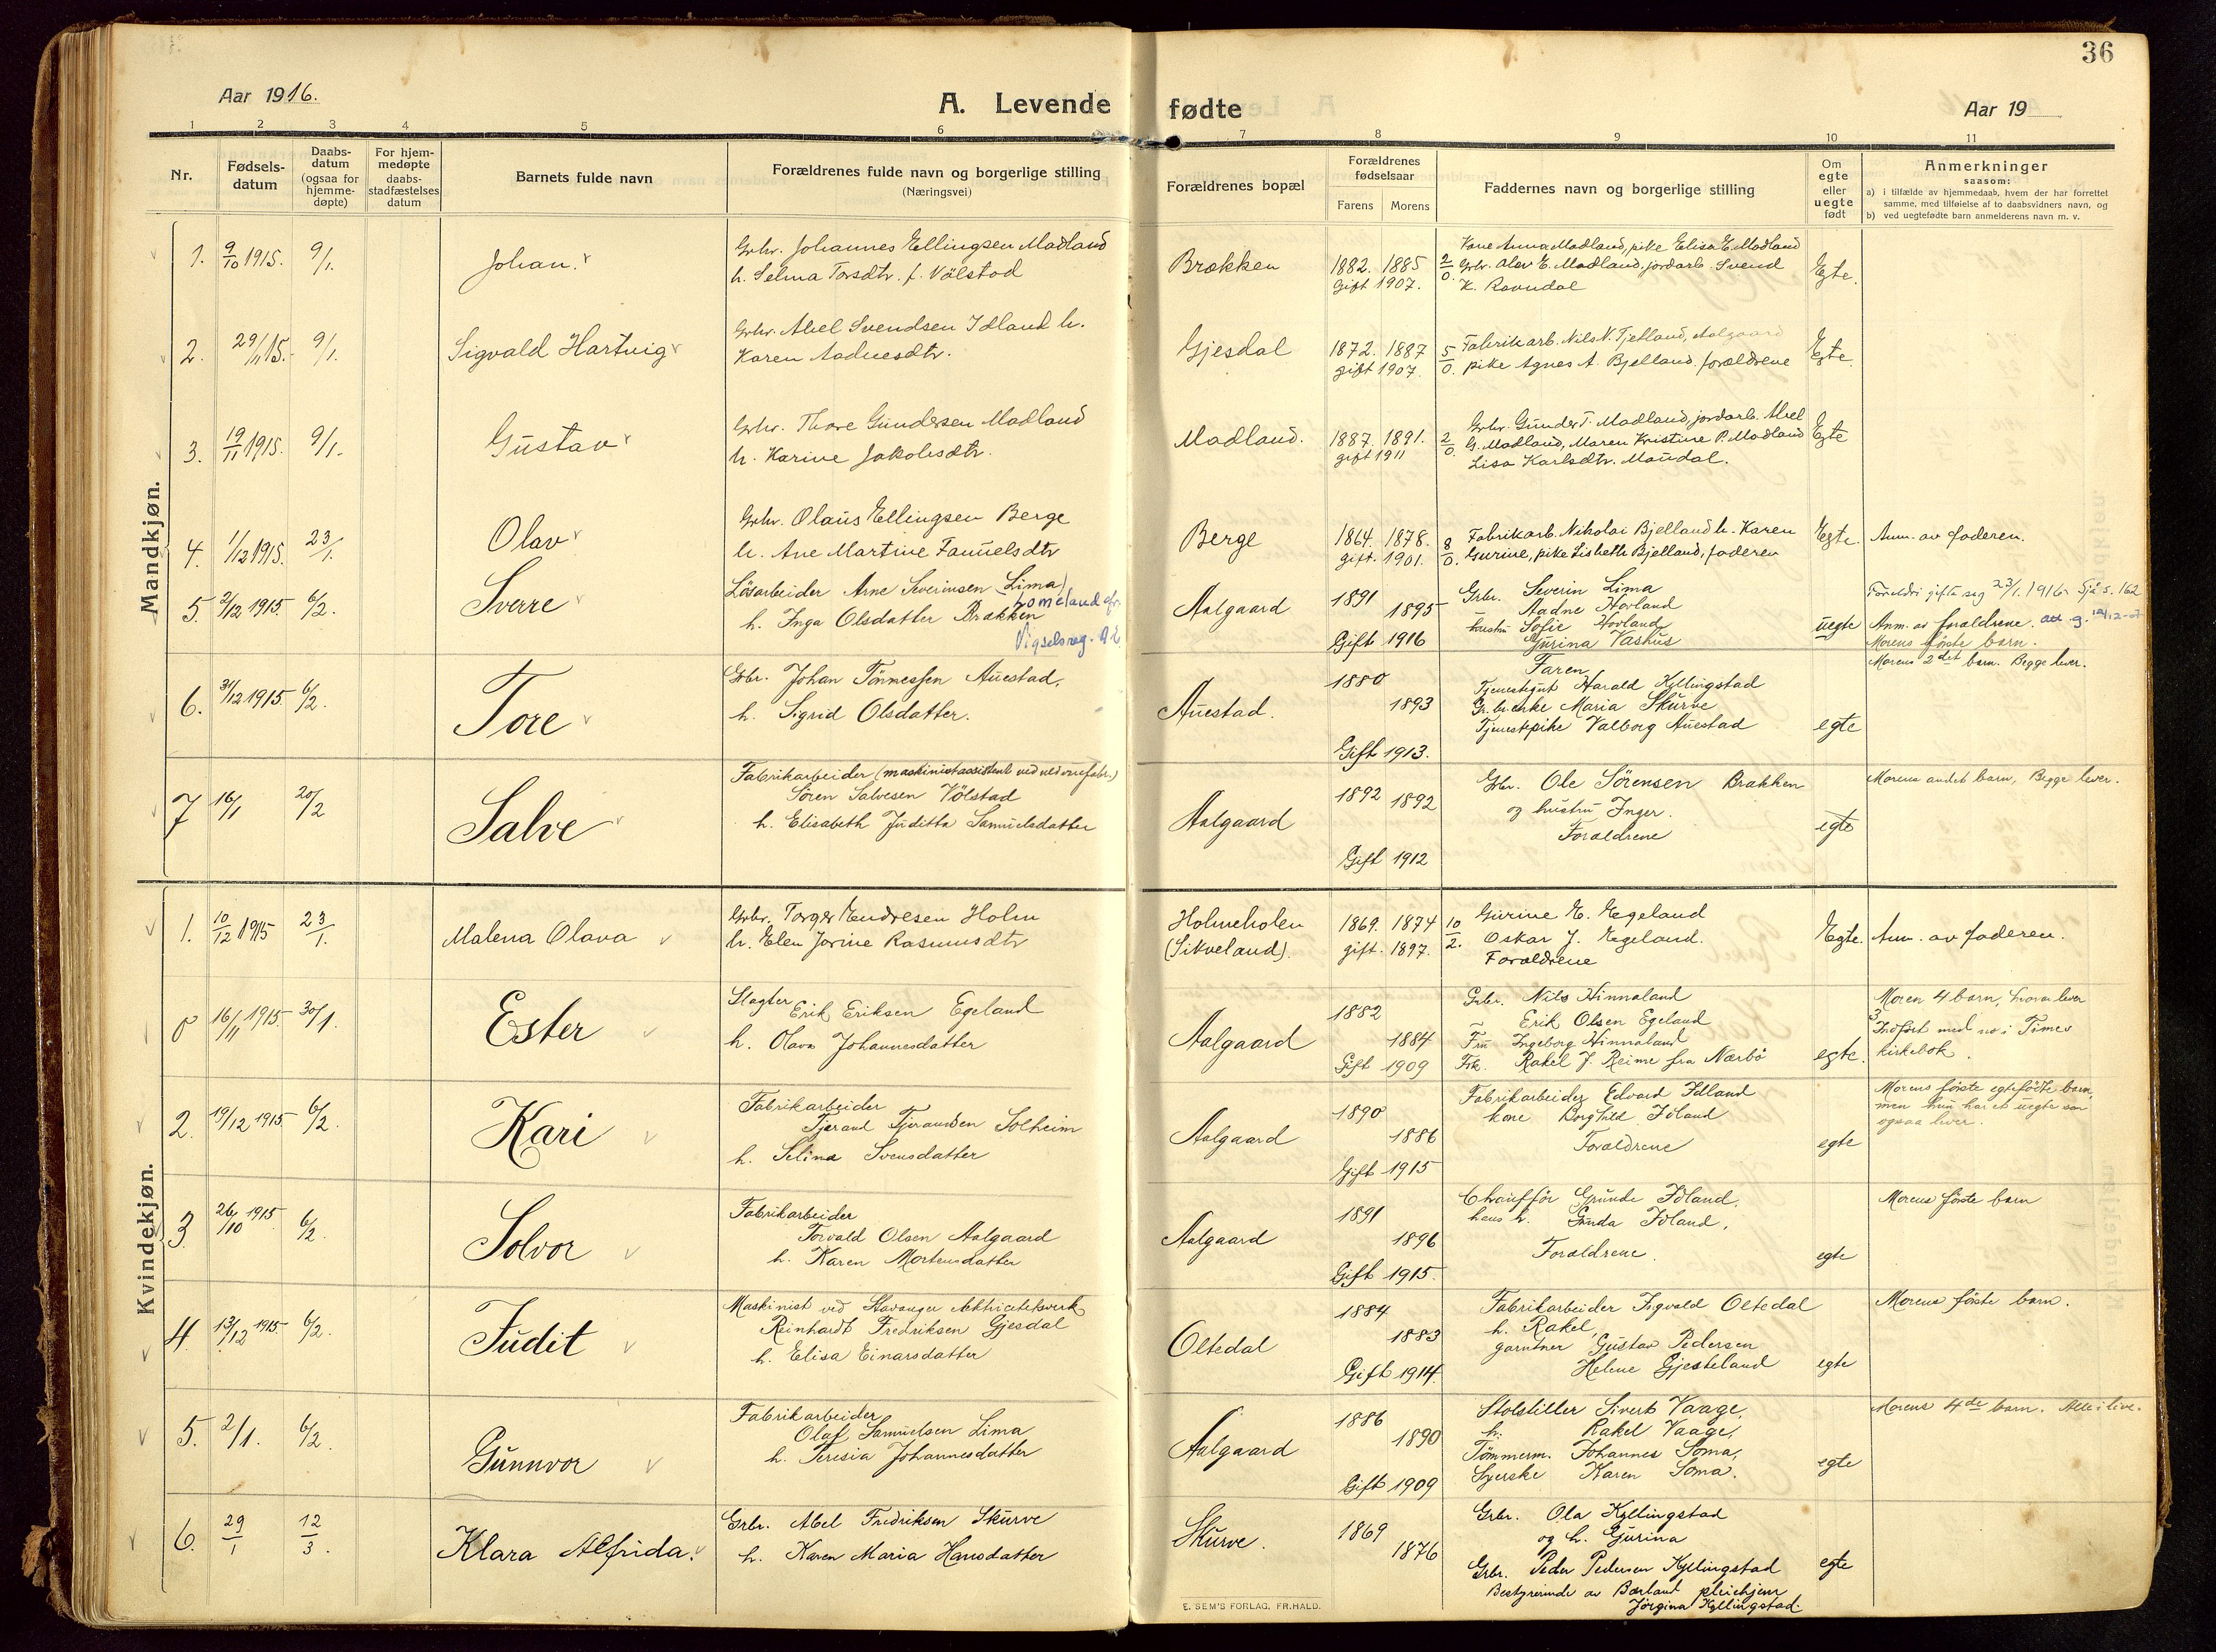 36
Aar 1916.
A. Levende fødte
Aar 19
1 2 3 4 5 6 7 8 9 10 11
Nr.
Fødsels-
datum
Daabs-
datum
(ogsaa for
hjemme-
døpte)
For hjem-
medøpte
daabs-
stadfæstelses
datum
Barnets fulde navn
Forældrenes fulde navn og borgerlige stilling
(Næringsvei)
Forældrenes bopæl
Forældrenes
fødselsaar
Farens Morens
Faddernes navn og borgerlige stilling
Om
egte
eller
uegte
født
Anmerkninger
saasom:
a) i tilfælde av hjemmedaab, hvem der har forrettet
samme, med tilføielse af to daabsvidners navn, og
b) ved uegtefødte barn anmelderens navn m. v.
Mandkjøn.
1. 9/10 1915. 9/1. Johan.
Grbr. Johannes Ellingsen Madland
h. Selma Torsdtr. f. Völstad
Brækken
1882. 1885 2/0.
Gift 1907.
Kone Anna Madland, pike Elisa E. Madland
Grbr. Olav E. Madland, jordarb. Svend
K. Ravndal
Egte.
2. 29/11 15. 9/1. Sigvald Hartvig
Grbr. Abel Svendsen Idland h.
Karen Aadnesdtr.
Gjesdal
1872. 1887 5/0.
gift 1907.
Fabrikarb. Nils N. Tjetland, Aalgaard
pike Agnes A. Bjelland. forældrene
Egte.
3. 19/11 1915. 9/1. Gustav
Grbr. Thore Gundersen Madland
h. Karine Jakobsdtr.
Madland.
1887. 1891. 2/0.
gift 1911
Grbr. Gunder T. Madland, jordarb. Abel
G. Madland, Maren Kristine P. Madland
Lisa Karlsdtr. Maudal.
Egte
4. 1/12 1915. 23/1. Olav
Grbr. Olaus Ellingsen Berge
h. Ane Martine Samuelsdtr
Berge
1864. 1878. 8/0.
gift. 1901.
Fabrikarb. Nikolai Bjelland h. Karen
Gurine, pike Lisbeth Bjelland, faderen
Egte.
Anm. av faderen.
5. 2/12 1915. 6/2. Sverre
Lösarbeider Arne Severinsen Lima
h. Inga Olsdatter Brækken
Vigselsreg.
Aalgaard
1891
1895
Gift 1916
Grbr. Severin Lima
Aadne Hovland
hustru Sofie Hovland
Gurina Vashus
uegte
Foreldri gifte seg 23/1. 1916. Sjå s. 162
Anm. av forældrene.
Morens første barn.
6. 31/12 1915. 6/2. Tore
Gbr. Johan Tönnessen Auestad.
h. Sigrid Olsdatter.
Auestad.
1880
1893
Gift 1913.
Faren
Tjenestegut Harald Kyllingstad
Gr.br.enke Maria Skurve
Tjenestpike Valborg Auestad
egte
Morens 2det barn. Begge lever.
7 16/1 20/2 Salve
Fabrikarbeider (maskinistassistent ved uldvarefabr.)
Sören Salvesen Völstad
h. Elisabeth Juditta Samuelsdatter
Aalgaard
1892 1892
Gift 1912
Gbr. Ole Sörensen Brækken
og hustru Inger.
Forældrene
egte
Morens andet barn, Begge lever.
Kvindekjøn.
1. 10/12 1915 23/1. Malena Olava
Grbr. Torger Endresen Holm
h. Elen Jorine Rasmusdtr
Holmeholen
(Sikveland).
1869. 1874 10/2.
gift. 1897.
Gurine E. Egeland
Oskar J. Egeland.
Forældrene
Egte.
Anm. av faderen.
0 16/11 1915. 30/1. Ester
Slagter
Erik Eriksen Egeland
h. Olava Johannesdatter
Aalgaard
1882
1884
Gift 1909
Grbr. Nils Hinnaland
Erik Olsen Egeland
Fru Ingeborg Hinnaland
Frk. Rakel J. Reime fra Nærbö
egte.
Moren 4 barn, hvorav lever
3
Indført med no i Times
kirkebok.
2. 19/12 1915 6/2. Kari
Fabrikarbeider
Tjerand Tjerandsen Solheim
h. Selina Svensdatter
Aalgaard
1890
1886
Gift 1915
Fabrikarbeider Edvard Idland
kone Borghild Idland
Forældrene
egte
Morens første egtefödte barn,
men hun har et uegte som
ogsaa lever.
3. 26/10 1915 6/2. Solvor
Fabrikarbeider
Torvald Olsen Aalgaard
h. Karen Mortensdatter
Aalgaard
1891
1896
Gift 1915.
Chaufför Grunde Idland,
hans h. Gunda Idland,
Forældrene.
egte
Morens første barn
4. 13/12 1915. 6/2. Judit
Maskinist ved Stavanger elektricitetsverk
Reinhardt Fredriksen Gjesdal
h. Elisa Einarsdatter
Oltedal
1884
1883
Gift 1914.
Fabrikarbeider Ingvald Oltedal
h. Rakel,
gartner Gustav Pedersen
Helene Gjesteland
egte
Morens första barn.
5. 2/1. 6/2. Gunnvor
Fabrikarbeider
Olaf Samuelsen Lima
h. Teresia Johannesdatter
Aalgaard
1886
1890
Gift 1909
Stolstiller Sivert Vaage,
h. Rakel Vaage,
Tömmerm. Johannes Soma,
Syerske Karen Soma.
egte
Morens 4de barn. Alle i live.
6. 29/1 12/3. Klara Alfrida.
Grbr. Abel Fredriksen Skurve
h. Karen Maria Hansdatter
Skurve.
1869
1876
Grbr. Ola Kyllingstad
og h. Gurina
Grbr. Peder Pedersen Kyllingstad
Bestyrerinde av Bærland pleiehjem
Jorgina Kyllingstad.
egte
E. SEM'S FORLAG, FR.HALD.